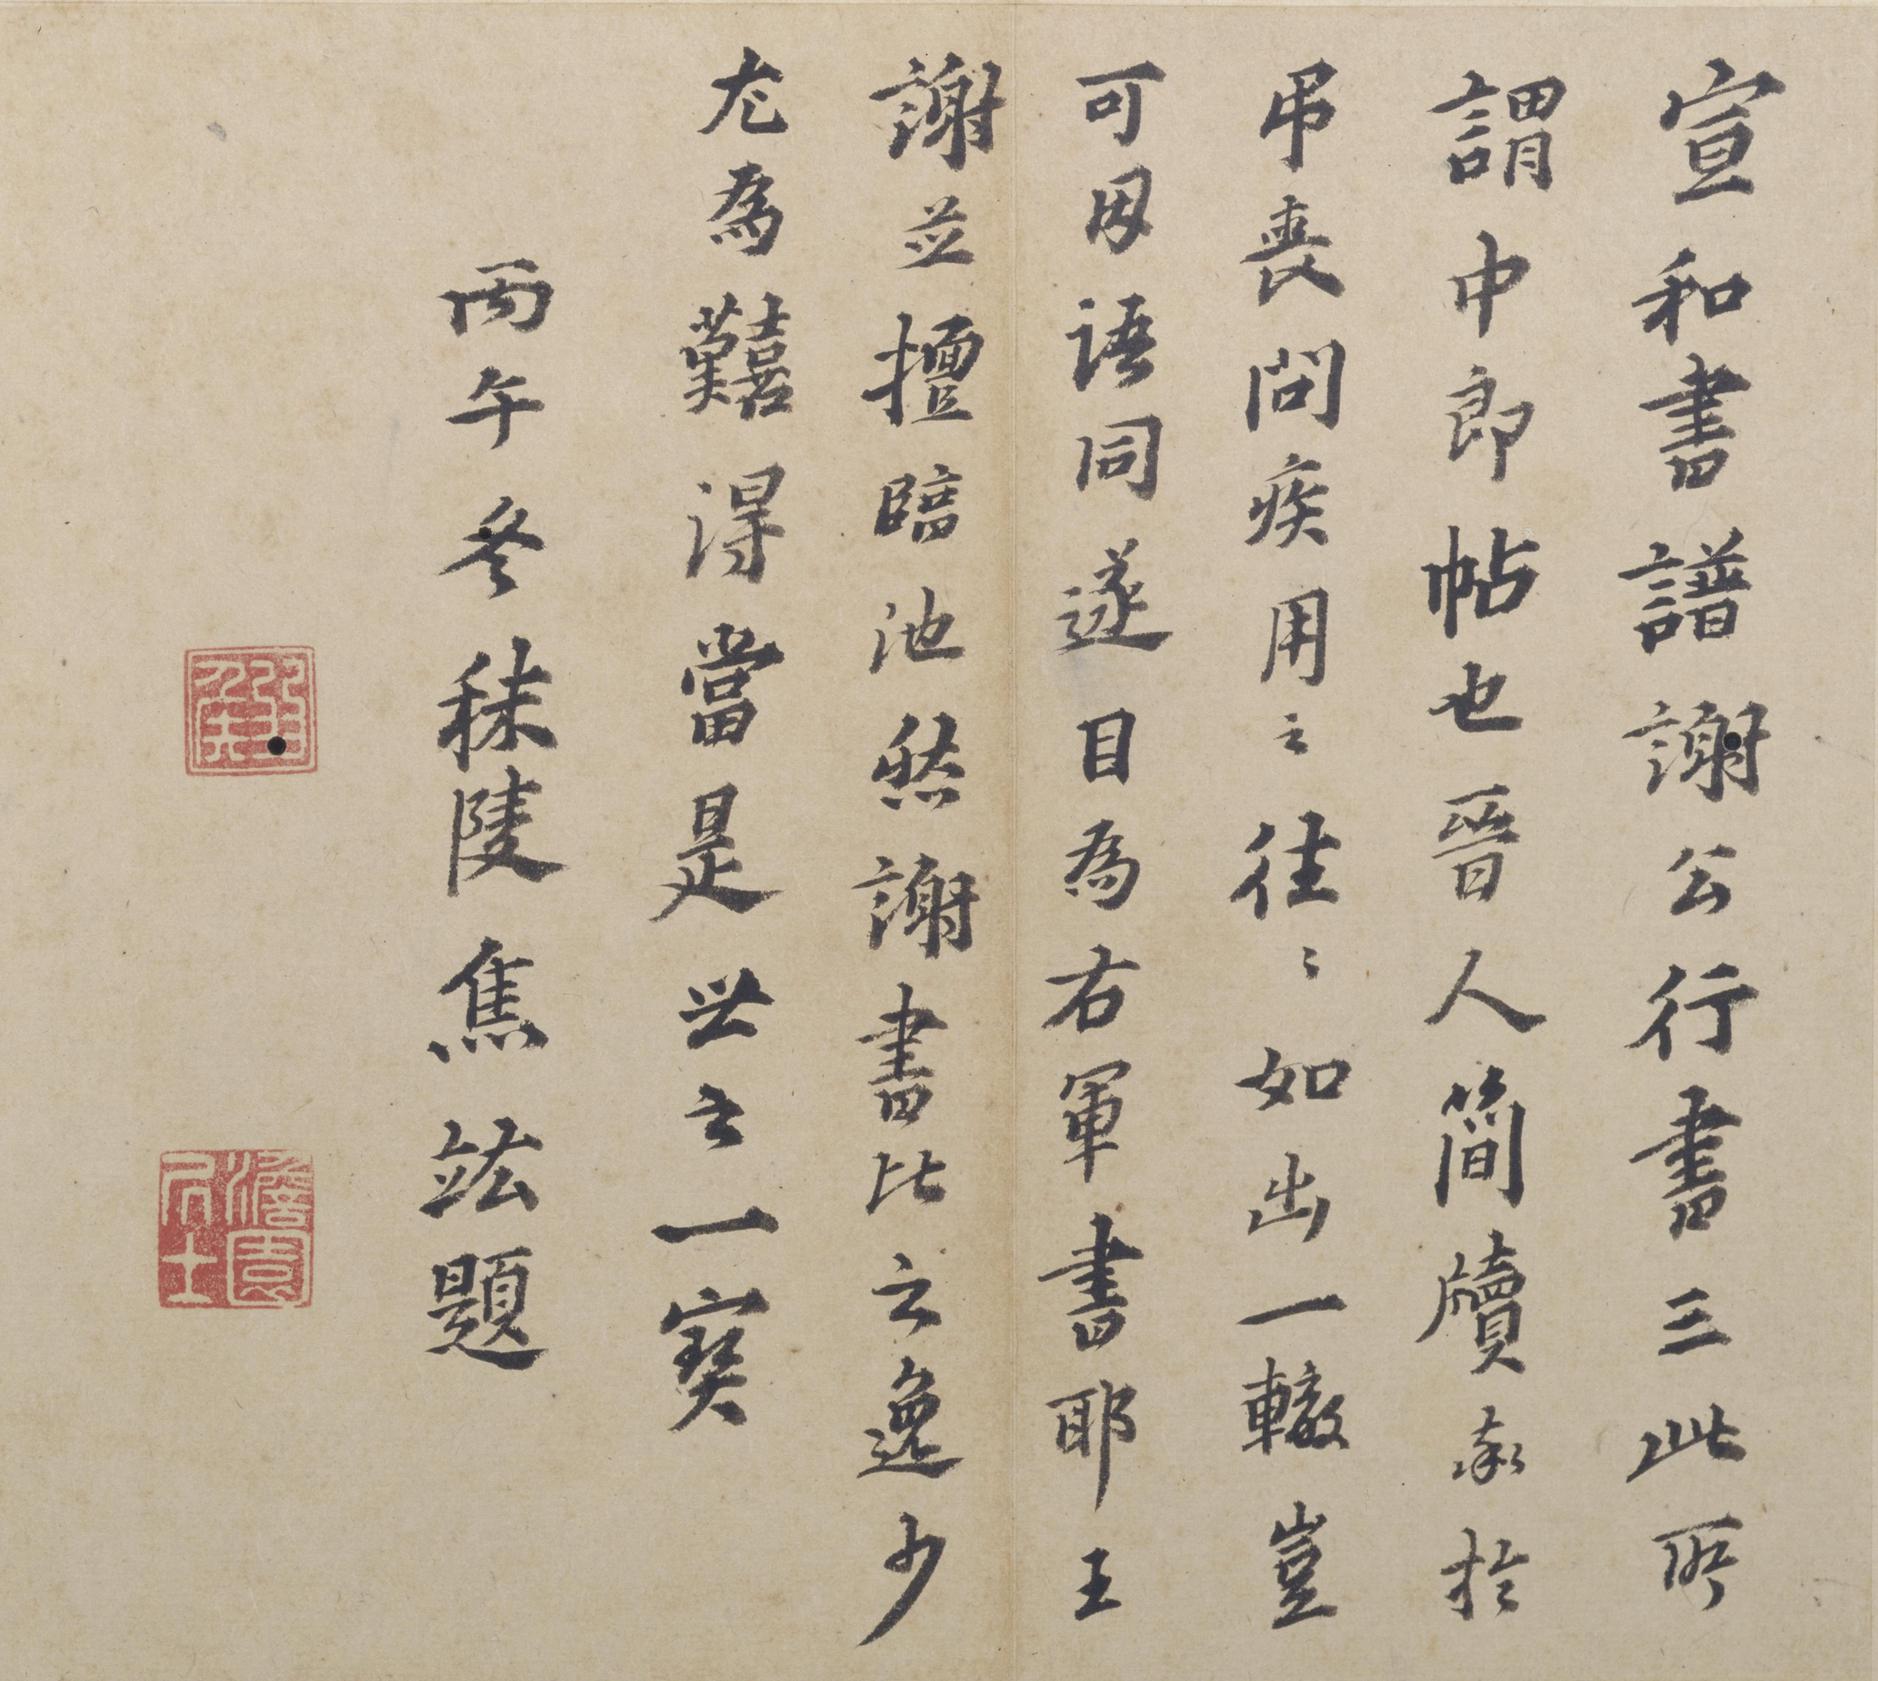 宣和書譜謝公行書三此所
謂中郎帖也晉人簡牘多於
弔喪問疾用之往〻如出一轍豈
可因語同遂目為右軍書耶王
謝並擅臨池然謝書比之逸少
尤為難得當是世之一寶
丙午冬秣陵焦竑題
弱侯
澹園居士